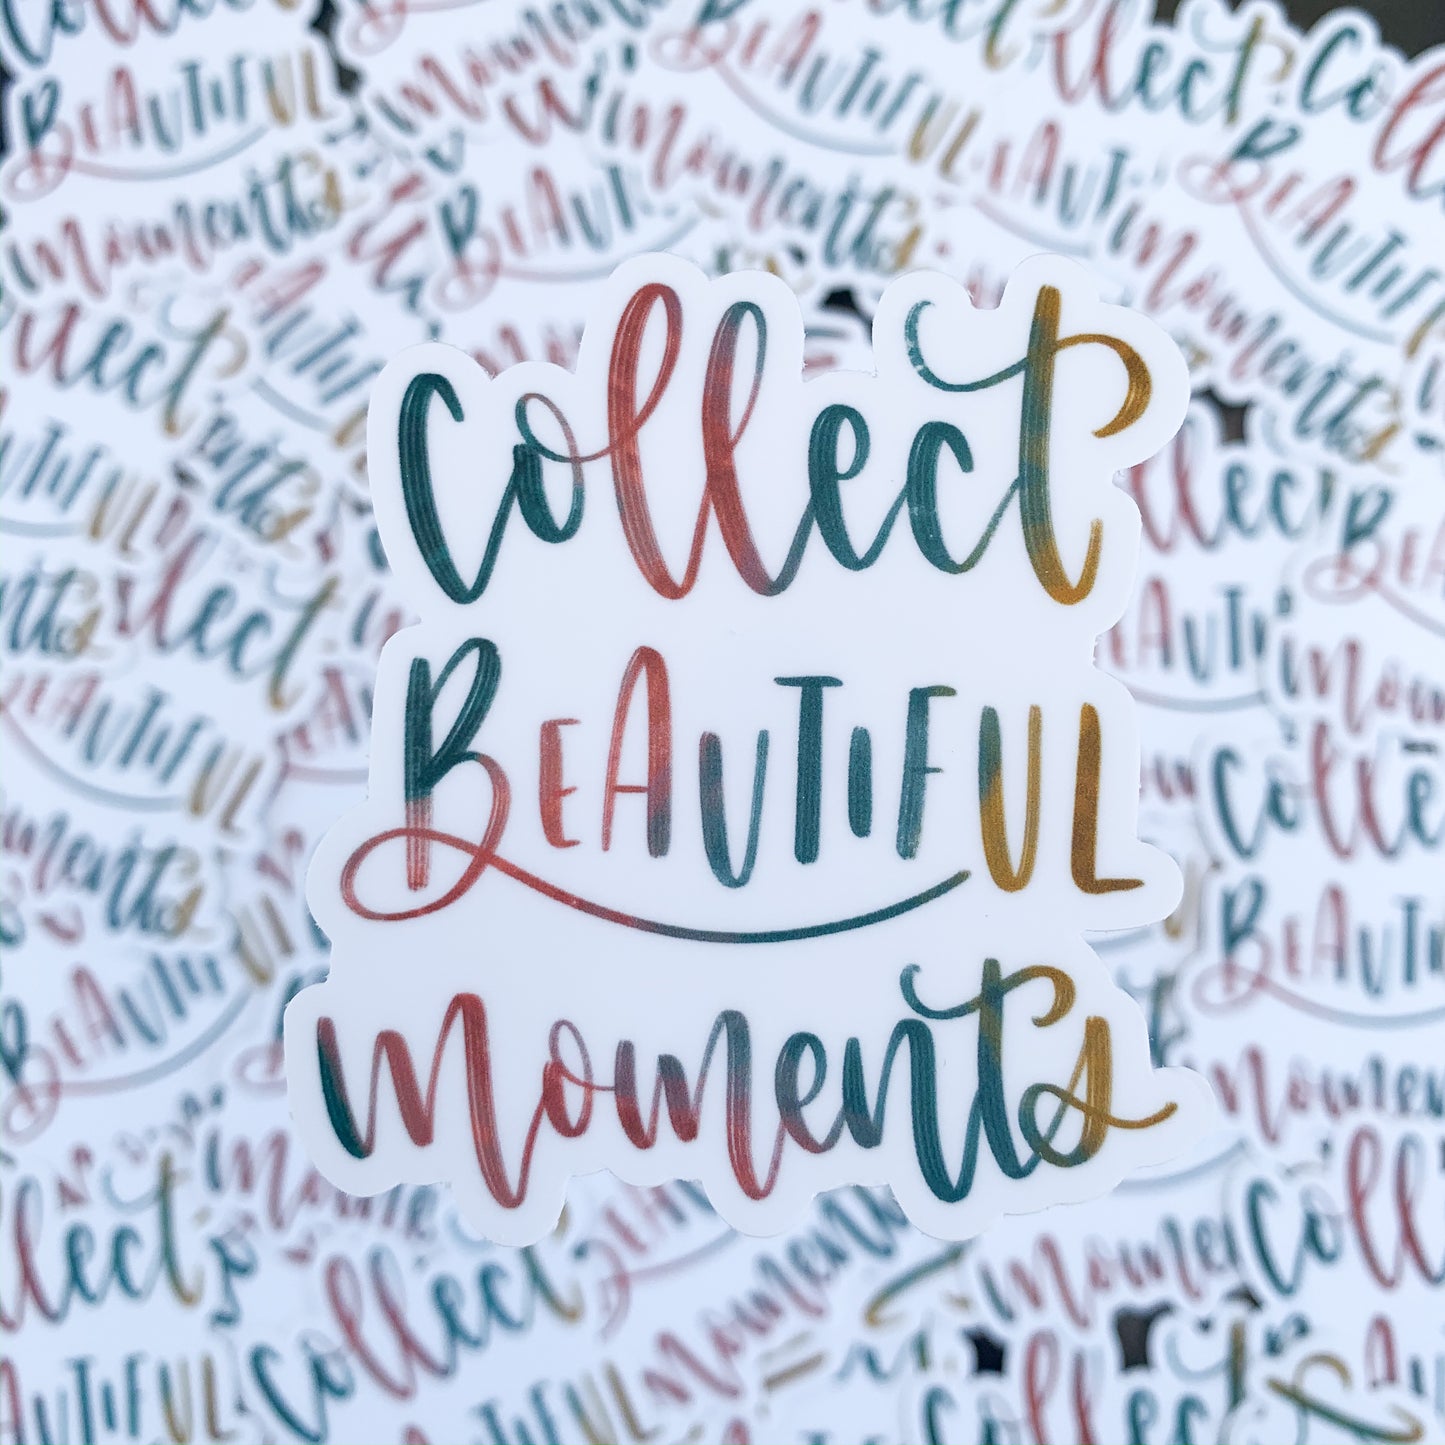 Collect
BEAUTIFUL
moments